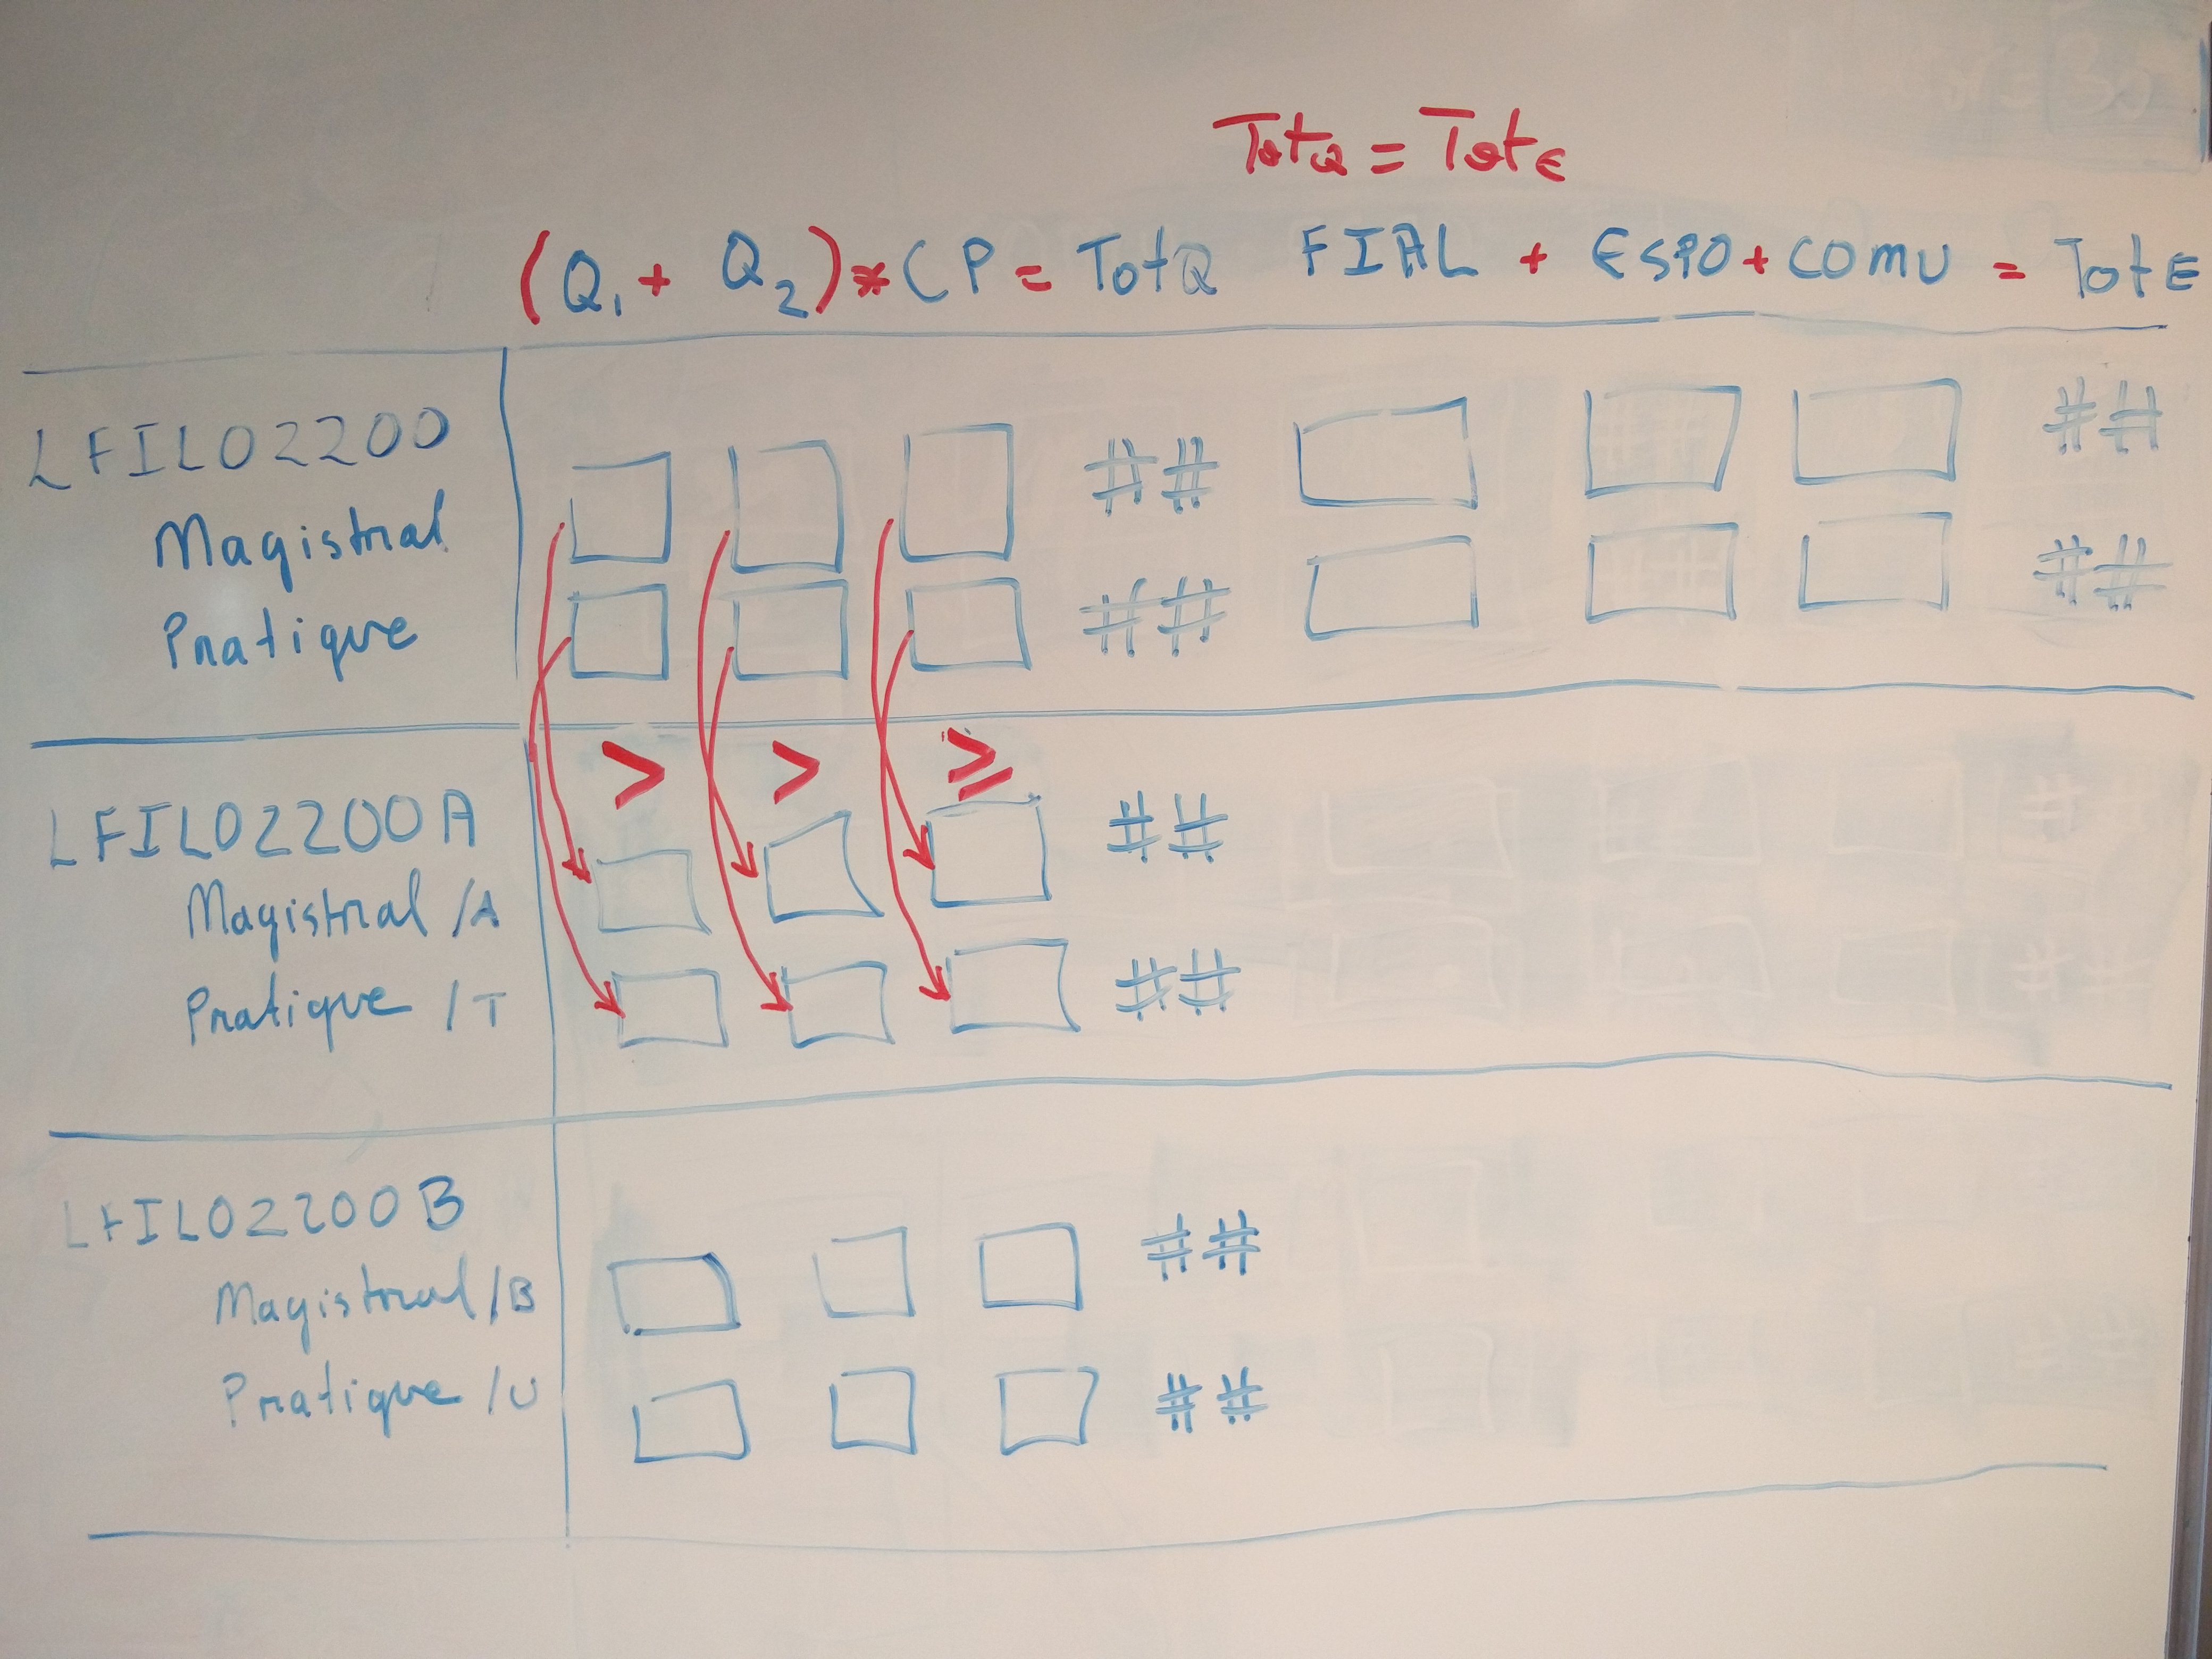 TotQ = TotE
(Q1 + Q2) * CP = TotQ FIAL + ESPO + COMU = TotE
LFILO2200
Magistral ## ##
Pratique ## ##
> > ≥
LFILO2200A
Magistral /A ##
Pratique /T ##
LFILO2200B
Magistral /B ##
Pratique /U ##